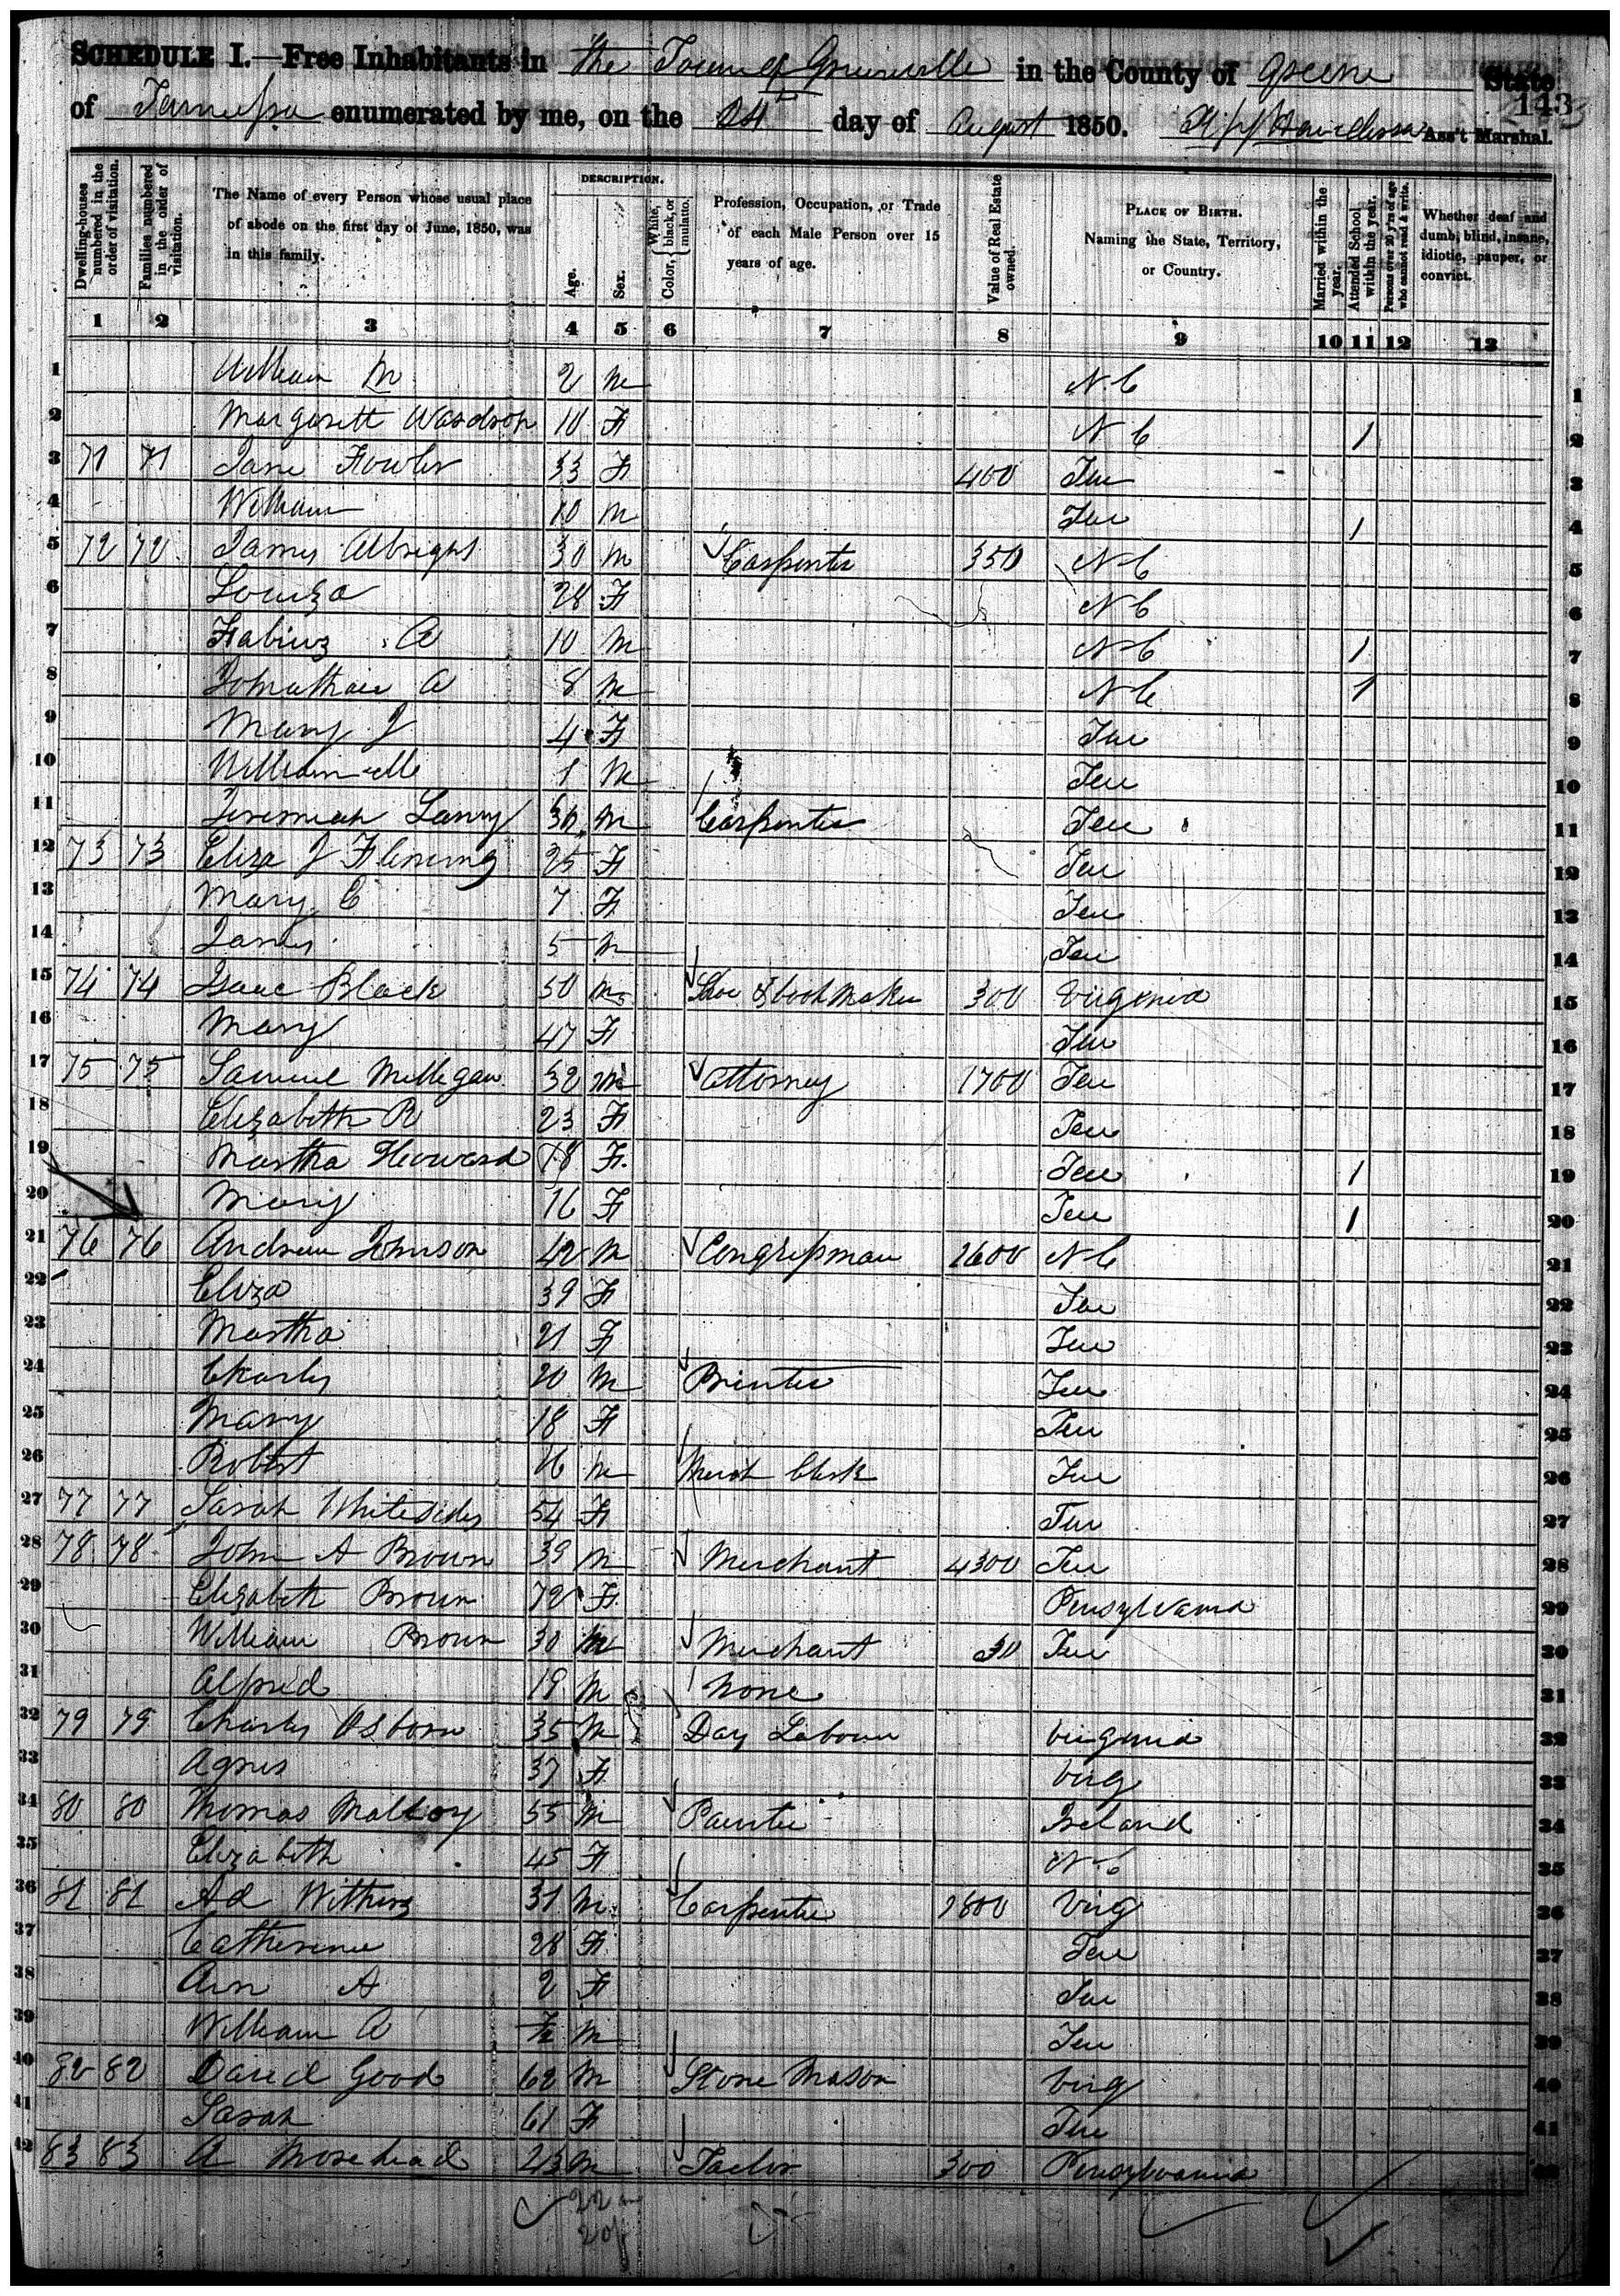 SCHEDULE I.—Free Inhabitants in the Town of Greeneville in the County of Greene State
of Tennessee enumerated by me, on the day of August 1850. Ass't Marshal.
143
Dwelling-houses numbered in the order of visitation.
Families numbered in the order of visitation.
The Name of every Person whose usual place of abode on the first day of June, 1850, was in this family.
DESCRIPTION.
Age.
Sex.
Color, { White, black, or mulatto.
Profession, Occupation, or Trade of each Male Person over 15 years of age.
Value of Real Estate owned.
PLACE OF BIRTH. Naming the State, Territory, or Country.
Married within the year.
Attended School within the year.
Persons over 20 y'rs of age who cannot read & write.
Whether deaf and dumb, blind, insane, idiotic, pauper, or convict.
1 2 3 4 5 6 7 8 9 10 11 12 13
1 William M 2 m N C 1
2 Margarett 10 F N C 1 2
3 71 71 Jane Fowler 33 F 400 Ten 3
4 William 10 m Ten 1 4
5 72 72 James Albright 30 m Carpenter 350 N C 5
6 Louiza 28 F N C 6
7 Fabius A 10 m N C 1 7
8 Johnathan A 8 m N C 1 8
9 Mary J 4 F Ten 9
10 William M 1 m Ten 10
11 Jeremiah m Carpenter Ten 11
12 73 73 Eliza J Fleming 25 F Ten 12
13 Mary C 7 F Ten 13
14 James 5 m Ten 14
15 74 74 Isaac Black 50 m Shoe & boot Maker 300 Virginia 15
16 Mary 47 F Ten 16
17 75 75 Samuel Milligan 32 m Attorney 1700 Ten 17
18 Elizabeth R 23 F Ten 18
19 Martha Howard 18 F Ten 1 19
20 Mary 16 F Ten 1 20
21 76 76 Andrew Johnson 42 m Congressman 2600 N C 21
22 Eliza 39 F Ten 22
23 Martha 21 F Ten 23
24 Charles 20 m Printer Ten 24
25 Mary 18 F Ten 25
26 Robert 16 m Merch Clerk Ten 26
27 77 77 Sarah Whitesides 54 F Ten 27
28 78 78 John A Brown 39 m Merchant 4300 Ten 28
29 Elizabeth Brown 72 F Pensylvania 29
30 William Brown 30 m Merchant Ten 30
31 Alfred 19 m none 31
32 79 79 Charles Osborn 35 m Day Labourer Virginia 32
33 Agnes 37 F Virg 33
34 80 80 Thomas Malloy 55 m Painter Ireland 34
35 Elizabeth 45 F N C 35
36 81 81 Ad Withers 31 m Carpenter Virg 36
37 Catherine 28 F Ten 37
38 Ann A 2 F Ten 38
39 William A m Ten 39
40 82 82 David Good 62 m Stone Mason Virg 40
41 Sarah 61 F Ten 41
42 83 83 A Morehead 23 m Tailor 300 Pensylvania 42
22 m
20 f